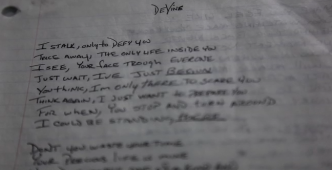 DeVine
I STALK, only to DEFY you
TAKE AWAY, THE ONLY LIFE INSIDE YOU
I SEE, YOUR FACE TROUGH EVERONE
JUST WAIT, I'VE JUST BEGUN
YOU THINK, I'M ONLY THERE TO SCARE YOU
THINK AGAIN, I JUST WANT TO you
FOR WHEN, YOU STOP AND TURN AROUND
I COULD BE STANDING
DON'T YOU WANT YOUR TIME
YOUR LIFE IS MINE